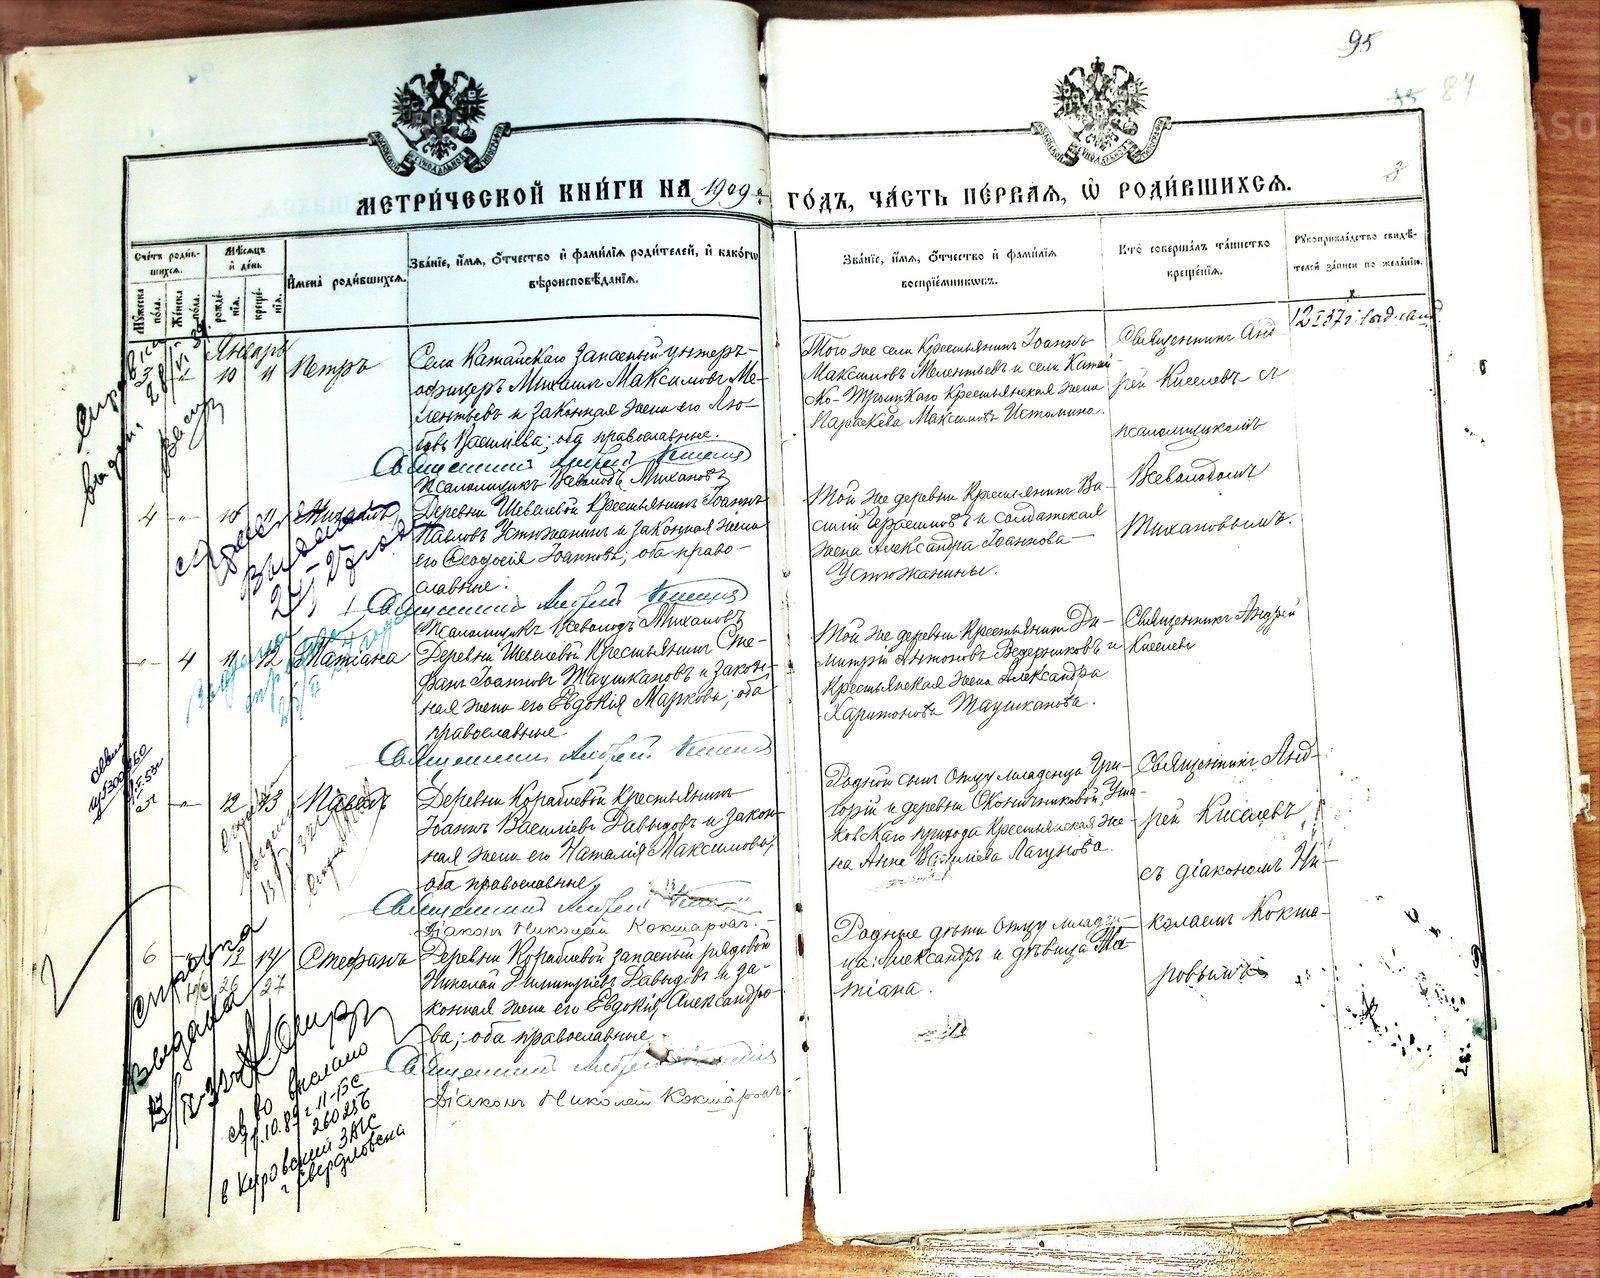 95
84
МЕТРИ́ЧЕСКОЙ КНИ́ГИ НА 1909 й ГО́ДЪ, ЧА́СТЬ ПЕ́РВАЯ, Ѡ҆ РОДИ́ВШИХСЯ.
Сче́тъ роди́в-
шихся.
Мѣ́сяцъ
и҆ де́нь
Мꙋ́жеска
по́ла.
Же́нска
по́ла.
рожде́-
нїя.
креще́-
нїя.
И҆мена̀ роди́вшихся.
Зва́нїе, и҆́мя, ѻ҆́тчество и҆ фами́лїя роди́телей, и҆ како́гѡ
вѣроисповѣ́данїя.
Зва́нїе, и҆́мя, ѻ҆́тчество и҆ фами́лїя
воспрїе́мникѡвъ.
Кто̀ соверша́лъ та́инство
креще́нїя.
Рꙋкоприкла́дство свидѣ́-
телей за́писи по жела́нїю.
Январь
10 11 Петръ
Села Катайскаго Запасный унтеръ-
офицеръ Михаилъ Максимовъ Ме-
лентьевъ и законная жена его Лю-
бовь Васильева; оба православные.
Священникъ Андрей Киселевъ
Псаломщикъ Всеволодъ Тихановъ
Того же села Крестьянинъ Іоаннъ
Максимовъ Мелентьевъ и села Катай-
ско-Троицкаго Крестьянская жена
Параскева Максимова Истомина.
Священникъ Анд
рей Киселевъ съ
псаломщикомъ
Всеволодомъ
Тихановымъ.
Справка
выдана
4 " 10 11 Михаилъ
Деревни Шевелевой Крестьянинъ Іоаннъ
Павловъ Устюжанинъ и законная жена
его Ѳеодосія Іоаннова; оба право-
славные.
Священникъ Андрей Киселевъ
Псаломщикъ Всеволодъ Тихановъ
Той же деревни Крестьянинъ Ва-
силій Герасимовъ и солдатская
жена Александра Іоаннова
Устюжанины.
" 4 11 12 Татіана
Деревни Шевелевой Крестьянинъ Сте-
фанъ Іоанновъ Таушкановъ и закон-
ная жена его Евдокія Маркова; оба
православные
Священникъ Андрей Киселевъ
Той же деревни Крестьянинъ Ди-
митрій Антоновъ Ведерниковъ и
Крестьянская жена Александра
Харитонова Таушканова.
Священникъ Андрей
Киселевъ
" 12 13 Павелъ
Деревни Кораблевой Крестьянинъ
Іоаннъ Василіевъ Давыдовъ и закон-
ная жена его Наталія Максимова;
оба православные
Священникъ Андрей
Діаконъ Николай Кокшаровъ.
Родной сынъ Отцу младенца Гри-
горій и деревни Оконичниковой,
прихода Крестьянская же-
на Анна Василіева Лагунова.
Священникъ Анд-
рей Киселевъ
съ діакономъ Ни-
колаемъ Кокша-
ровымъ
6 " 13 14 Стефанъ
26 27
Деревни Кораблевой запасный рядовой
Николай Димитріевъ Давыдовъ и за-
конная жена его Евдокія Александро-
ва; оба православные.
Священникъ Андрей
Діаконъ Николай Кокшаровъ.
Родные дѣти Отцу младен-
ца: Александръ и дѣвица Та-
тіана.
Справка
Выдана
св во выслано
260256
в Кировский ЗАГС
г Свердловска